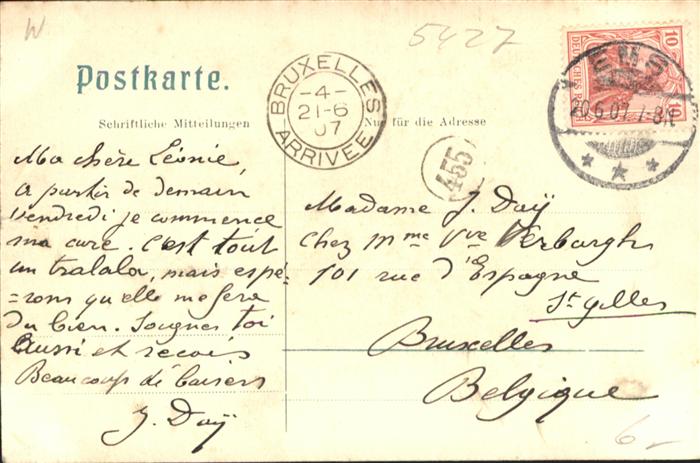 W
5427
Postkarte.
Schriftliche Mitteilungen
Nur für die Adresse
BRUXELLES
-4-
21-6
07
ARRIVÉE
455
10 10
DEUTSCHES REICH
EMS
20.6.07. 7-8N.
* * *
Ma chère Léonie,
A partir de demain
vendredi je commence
ma cure. C'est tout
un tralala, mais espé-
=rons qu'elle me fera
du bien. Soignes toi
aussi et reçois
Beaucoup de baisers
J. Daÿ
Madame J. Daÿ
Chez Mme Vve Verburgh
101 rue d'Espagne
St gilles
Bruxelles
Belgique
6-